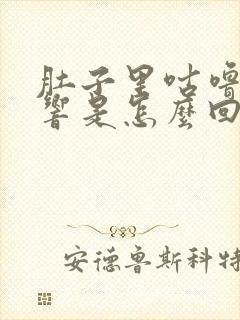 肚子里咕噜
响是怎麼回
安德鲁斯科特